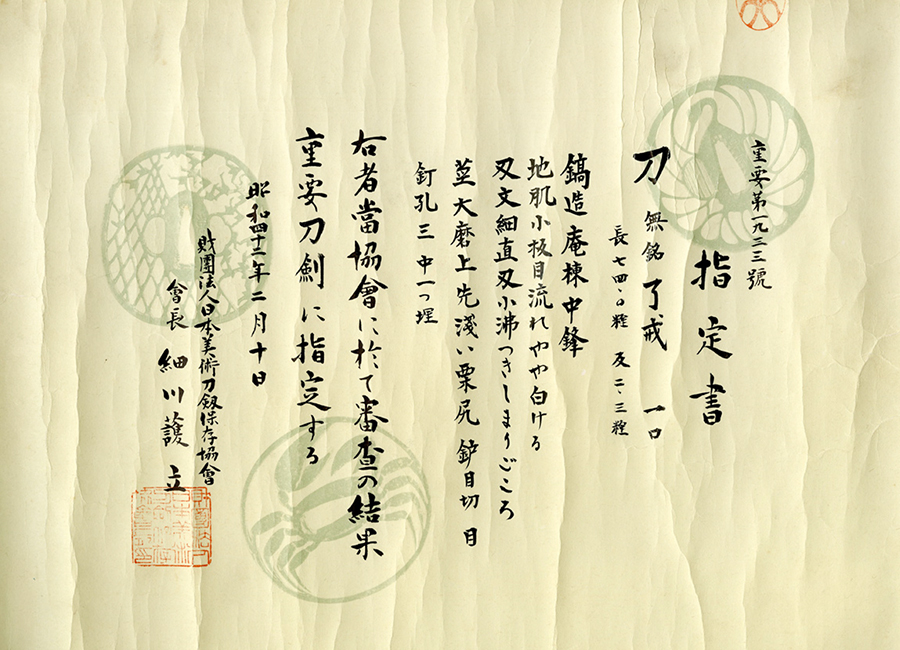 重要第一九三三號
指定書
刀 無銘 了戒 一口
長七四・〇糎 反二・三糎
鎬造庵棟中鋒
地肌小板目流れやや白ける
刃文細直刃小沸つきしまりごころ
茎大磨上先淺い栗尻 鈩目切 目
釘孔三中一つ埋
右者當協會に於て審査の結果
重要刀劍に指定する
昭和四十二年二月十日
財團法人日本美術刀剱保存協會
會長 細川護立